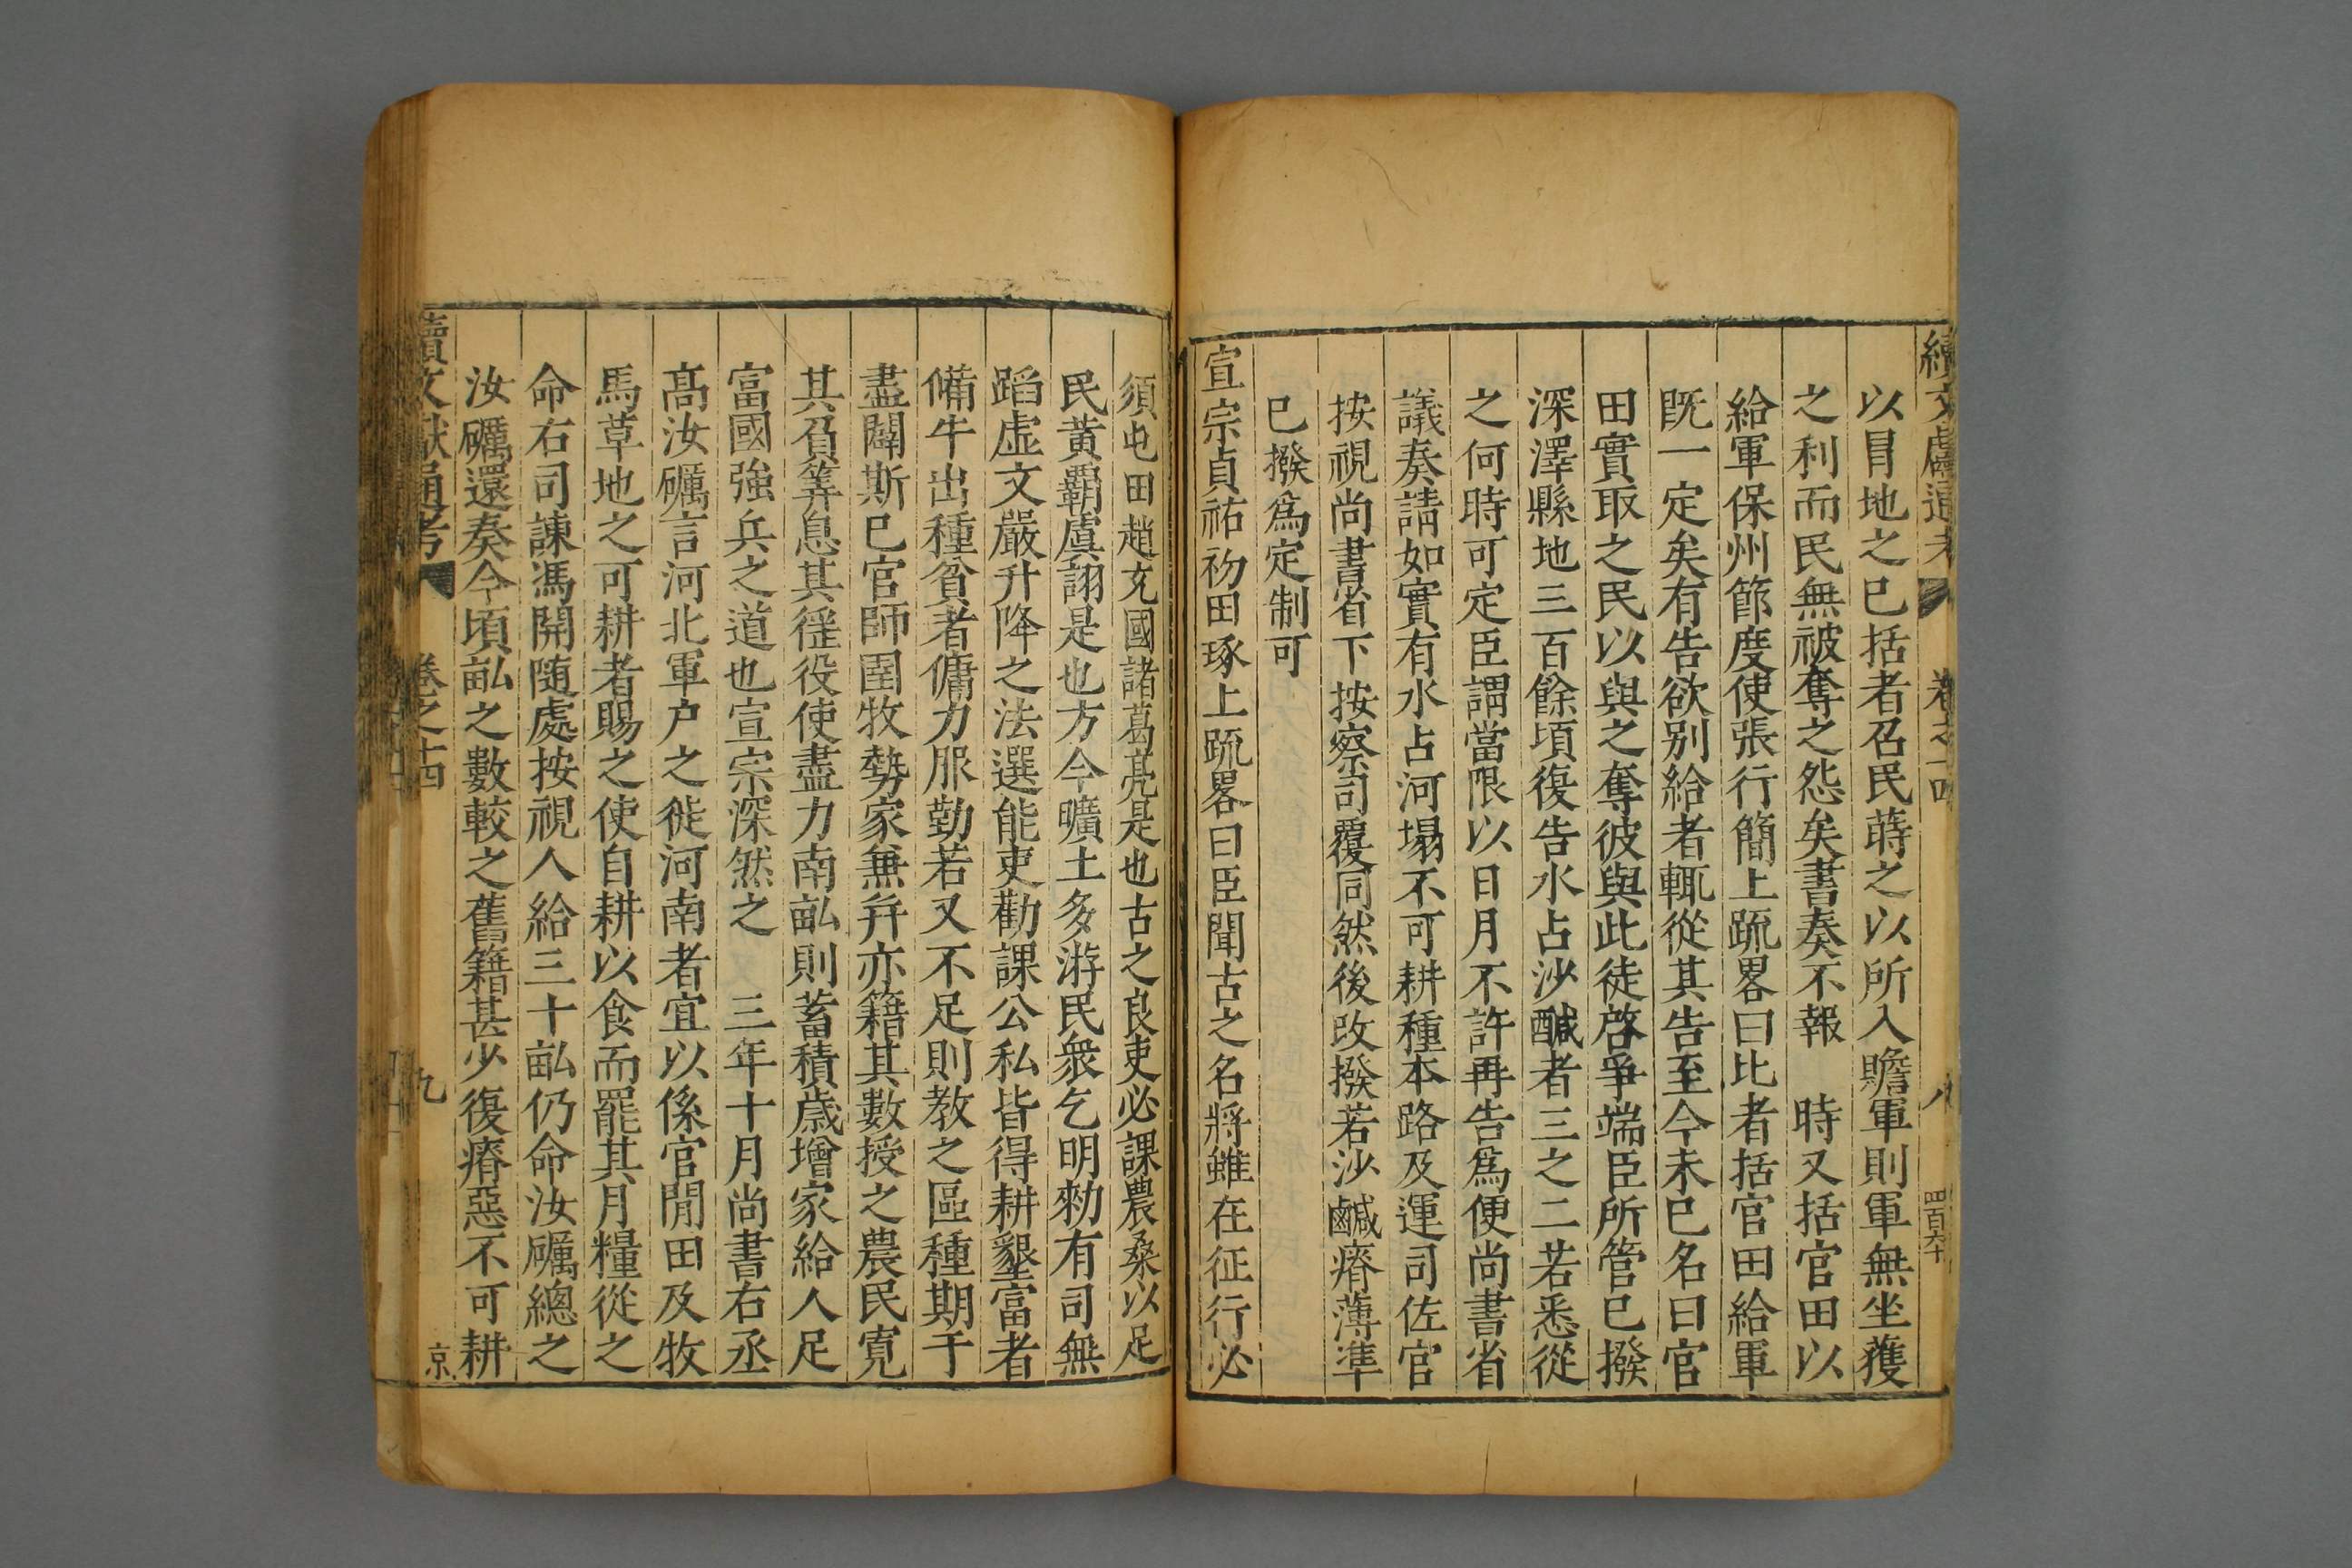 續文獻通考 卷之十四 八 四百六十
以冒地之已括者召民蒔之以所入贍軍則軍無坐獲
之利而民無被奪之怨矣書奏不報 時又括官田以
給軍保州節度使張行簡上疏畧曰比者括官田給軍
既一定矣有告欲别給者輒從其告至今未已名曰官
田實取之民以與之奪彼與此徒啓爭端臣所管已撥
深澤縣地三百餘頃復告水占沙鹹者三之二若悉從
之何時可定臣謂當限以日月不許再告爲便尚書省
議奏請如實有水占河塌不可耕種本路及運司佐官
按視尚書省下按察司覆同然後改撥若沙鹹瘠薄準
已撥爲定制可
宣宗貞祐初田琢上疏畧曰臣聞古之名將雖在征行必
須屯田趙充國諸葛亮是也古之良吏必課農桑以足
民黄霸虞詡是也方今曠土多游民衆乞明勑有司無
蹈虛文嚴升降之法選能吏勸課公私皆得耕墾富者
備牛出種貧者傭力服勤若又不足則教之區種期于
盡闢斯已官師圉牧勢家兼并亦籍其數授之農民寛
其負筭息其徭役使盡力南畆則蓄積歲增家給人足
富國強兵之道也宣宗深然之 三年十月尚書右丞
髙汝礪言河北軍户之徙河南者宜以係官閒田及牧
馬草地之可耕者賜之使自耕以食而罷其月糧從之
命右司諫馮開隨處按視人給三十畆仍命汝礪總之
汝礪還奏今頃畆之數較之舊籍甚少復瘠惡不可耕
續文獻通考 卷之十四 九 京